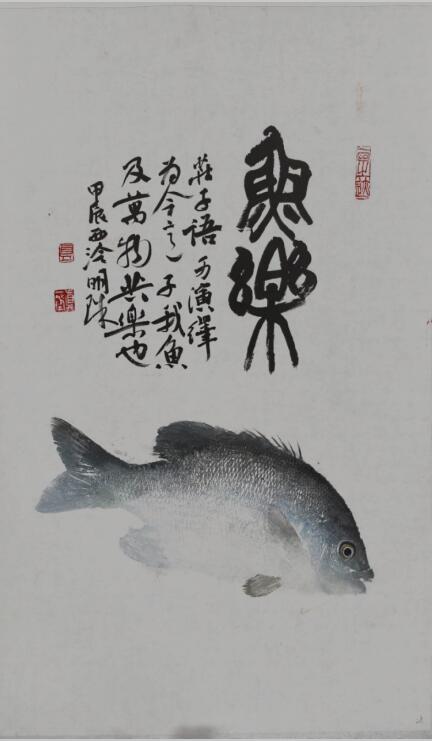 魚樂
莊子語可演繹
为今言子我魚
及萬物共樂也
甲辰西泠明